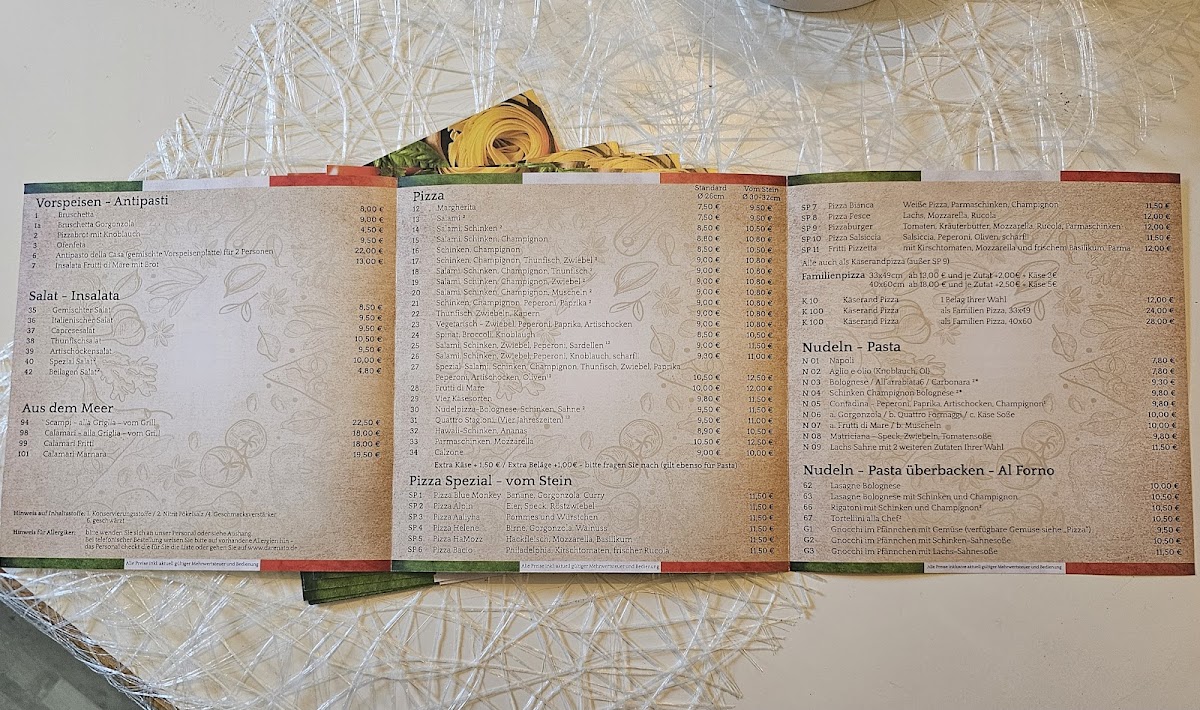 Vorspeisen - Antipasti
1 Bruschetta 8,00 €
1a Bruschetta Gorgonzola 9,00 €
2 Pizzabrot mit Knoblauch 4,50 €
3 Ofenfeta 9,50 €
6 Antipasto della Casa (gemischte Vorspeisenplatte) für 2 Personen 22,00 €
7 Insalata Frutti di Mare mit Brot 13,00 €
Salat - Insalata
35 Gemischter Salat 8,50 €
36 Italienischer Salat 9,50 €
37 Capresesalat 9,50 €
38 Thunfischsalat 10,50 €
39 Artischockensalat 9,50 €
40 Spezial Salat 10,00 €
42 Beilagen Salat 4,80 €
Aus dem Meer
94 Scampi - alla Griglia - vom Grill 22,50 €
98 Calamari - alla Griglia - vom Grill 18,00 €
99 Calamari Fritti 18,00 €
101 Calamari Marinara 19,50 €
Hinweis auf Inhaltsstoffe: 1. Konservierungsstoffe / 2. Nitrit Pökelsalz / 4. Geschmacksverstärker,
6. geschwärzt
Hinweis für Allergiker: bitte wenden Sie sich an unser Personal oder siehe Aushang.
Bei telefonischer Bestellung weisen Sie bitte auf vorhandene Allergien hin -
das Personal checkt die für Sie die Liste oder gehen Sie auf
Alle Preise inkl. aktuell gültiger Mehrwertsteuer und Bedienung
Pizza Standard Ø 26cm Vom Stein Ø 30-32cm
12 Margherita 7,50 € 9,50 €
13 Salami ² 7,50 € 9,50 €
14 Salami, Schinken ² 8,50 € 10,50 €
15 Salami, Schinken, Champignon 8,80 € 10,80 €
16 Schinken, Champignon 8,50 € 10,50 €
17 Schinken, Champignon, Thunfisch, Zwiebel 9,00 € 10,80 €
18 Salami, Schinken, Champignon, Thunfisch 9,00 € 10,80 €
19 Salami, Schinken, Champignon, Zwiebel ² 9,00 € 10,80 €
20 Salami, Schinken, Champignon, Muscheln ² 9,00 € 10,80 €
21 Schinken, Champignon, Peperoni, Paprika ² 9,00 € 10,80 €
22 Thunfisch, Zwiebeln, Kapern 9,00 € 10,80 €
23 Vegetarisch - Zwiebel, Peperoni, Paprika, Artischocken 9,00 € 10,80 €
24 Spinat, Broccoli, Knoblauch 8,50 € 10,50 €
25 Salami, Schinken, Zwiebel, Peperoni, Sardellen 9,00 € 11,50 €
26 Salami, Schinken, Zwiebel, Peperoni, Knoblauch, scharf! 9,30 € 11,00 €
27 Spezial- Salami, Schinken, Champignon, Thunfisch, Zwiebel, Paprika
Peperoni, Artischocken, Oliven 10,50 € 12,50 €
28 Frutti di Mare 10,00 € 12,00 €
29 Vier Käsesorten 9,80 € 11,50 €
30 Nudelpizza-Bolognese, Schinken, Sahne ² 9,50 € 11,50 €
31 Quattro Stagioni (Vier Jahreszeiten) 9,50 € 11,50 €
32 Hawaii-Schinken, Ananas 8,90 € 10,50 €
33 Parmaschinken, Mozzarella 10,50 € 12,50 €
34 Calzone 9,00 € 10,00 €
Extra Käse +1,50 € / Extra Beläge +1,00 € - bitte fragen Sie nach (gilt ebenso für Pasta)
Pizza Spezial - vom Stein
SP 1 Pizza Blue Monkey Banane, Gorgonzola, Curry 11,50 €
SP 2 Pizza Alpils Eier, Speck, Röstzwiebel 11,50 €
SP 3 Pizza Aaliyha Pommes und Würstchen 11,50 €
SP 4 Pizza Helene Birne, Gorgonzola, Walnuss 11,50 €
SP 5 Pizza HaMozz Hackfleisch, Mozzarella, Basilikum 11,50 €
SP 6 Pizza Bacio Philadelphia, Kirschtomaten, frischer Rucola 11,50 €
Alle Preise inkl. aktuell gültiger Mehrwertsteuer und Bedienung
SP 7 Pizza Bianca Weiße Pizza, Parmaschinken, Champignon 11,50 €
SP 8 Pizza Pesce Lachs, Mozzarella, Rucola 12,00 €
SP 9 Pizzaburger Tomaten, Kräuterbutter, Mozzarella, Rucola, Parmaschinken 12,00 €
SP 10 Pizza Salsiccia Salsiccia, Peperoni, Oliven, scharf! 11,50 €
SP 11 Fritti Pizzetta mit Kirschtomaten, Mozzarella und frischem Basilikum, Parma 12,00 €
Alle auch als Käserandpizza (außer SP 9)
Familienpizza 33x49cm ab 13,00 € und je Zutat +2,00€ + Käse 3€
40x60cm ab 18,00 € und je Zutat +2,50€ + Käse 5€
K 10 Käserand Pizza 1 Belag Ihrer Wahl 12,00 €
K 100 Käserand Pizza als Familien Pizza, 33x49 24,00 €
K 100 Käserand Pizza als Familien Pizza, 40x60 28,00 €
Nudeln - Pasta
N 01 Napoli 7,80 €
N 02 Aglio e olio (Knoblauch, Öl) 7,80 €
N 03 Bolognese / All'arrabiata6 / Carbonara ²* 9,30 €
N 04 Schinken Champignon Bolognese ²* 9,80 €
N 05 Contadina - Peperoni, Paprika, Artischocken, Champignon 9,80 €
N 06 a. Gorgonzola / b. Quattro Formaggi / c. Käse Soße 10,00 €
N 07 a. Frutti di Mare / b. Muscheln 10,00 €
N 08 Matriciana - Speck, Zwiebeln, Tomatensoße 9,80 €
N 09 Lachs Sahne mit 2 weiteren Zutaten Ihrer Wahl 11,50 €
Nudeln - Pasta überbacken - Al Forno
62 Lasagne Bolognese 10,00 €
63 Lasagne Bolognese mit Schinken und Champignon 10,50 €
66 Rigatoni mit Schinken und Champignon² 10,50 €
67 Tortellini alla Chef² 10,50 €
G1 Gnocchi im Pfännchen mit Gemüse (verfügbare Gemüse siehe „Pizza") 9,50 €
G2 Gnocchi im Pfännchen mit Schinken-Sahnesoße 10,50 €
G3 Gnocchi im Pfännchen mit Lachs-Sahnesoße 11,50 €
Alle Preise inklusive aktuell gültiger Mehrwertsteuer und Bedienung